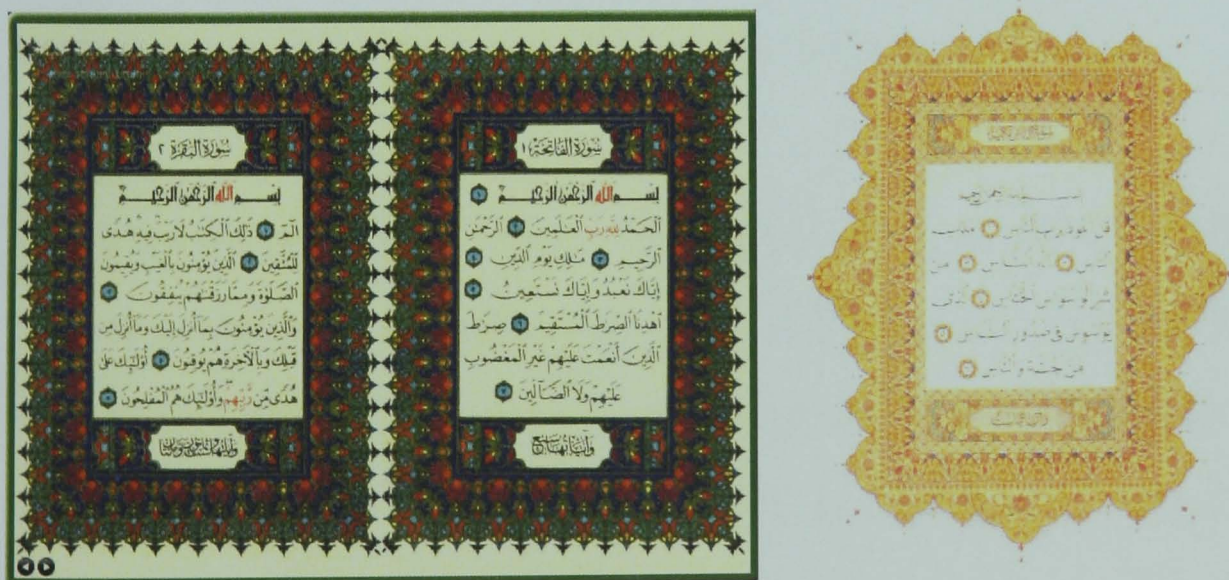 سورة الفاتحة ١
بِسْمِ ٱللَّهِ ٱلرَّحْمَٰنِ ٱلرَّحِيمِ ١
ٱلْحَمْدُ لِلَّهِ رَبِّ ٱلْعَٰلَمِينَ ٢ ٱلرَّحْمَٰنِ
ٱلرَّحِيمِ ٣ مَٰلِكِ يَوْمِ ٱلدِّينِ ٤
إِيَّاكَ نَعْبُدُ وَإِيَّاكَ نَسْتَعِينُ ٥
ٱهْدِنَا ٱلصِّرَٰطَ ٱلْمُسْتَقِيمَ ٦ صِرَٰطَ
ٱلَّذِينَ أَنْعَمْتَ عَلَيْهِمْ غَيْرِ ٱلْمَغْضُوبِ
عَلَيْهِمْ وَلَا ٱلضَّآلِّينَ ٧
وآياتها سبع
سورة البقرة ٢
بِسْمِ ٱللَّهِ ٱلرَّحْمَٰنِ ٱلرَّحِيمِ
الٓمٓ ١ ذَٰلِكَ ٱلْكِتَٰبُ لَا رَيْبَ فِيهِ هُدًى
لِّلْمُتَّقِينَ ٢ ٱلَّذِينَ يُؤْمِنُونَ بِٱلْغَيْبِ وَيُقِيمُونَ
ٱلصَّلَوٰةَ وَمِمَّا رَزَقْنَٰهُمْ يُنفِقُونَ ٣
وَٱلَّذِينَ يُؤْمِنُونَ بِمَآ أُنزِلَ إِلَيْكَ وَمَآ أُنزِلَ مِن
قَبْلِكَ وَبِٱلْءَاخِرَةِ هُمْ يُوقِنُونَ ٤ أُو۟لَٰٓئِكَ عَلَىٰ
هُدًى مِّن رَّبِّهِمْ وَأُو۟لَٰٓئِكَ هُمُ ٱلْمُفْلِحُونَ ٥
بسم الله الرحمن الرحيم
قل أعوذ برب ٱلناس ١ ملك
ٱلناس ٢ إله ٱلناس ٣ من
شر ٱلوسواس ٱلخناس ٤ ٱلذى
يوسوس فى صدور ٱلناس ٥
من ٱلجنة وٱلناس ٦